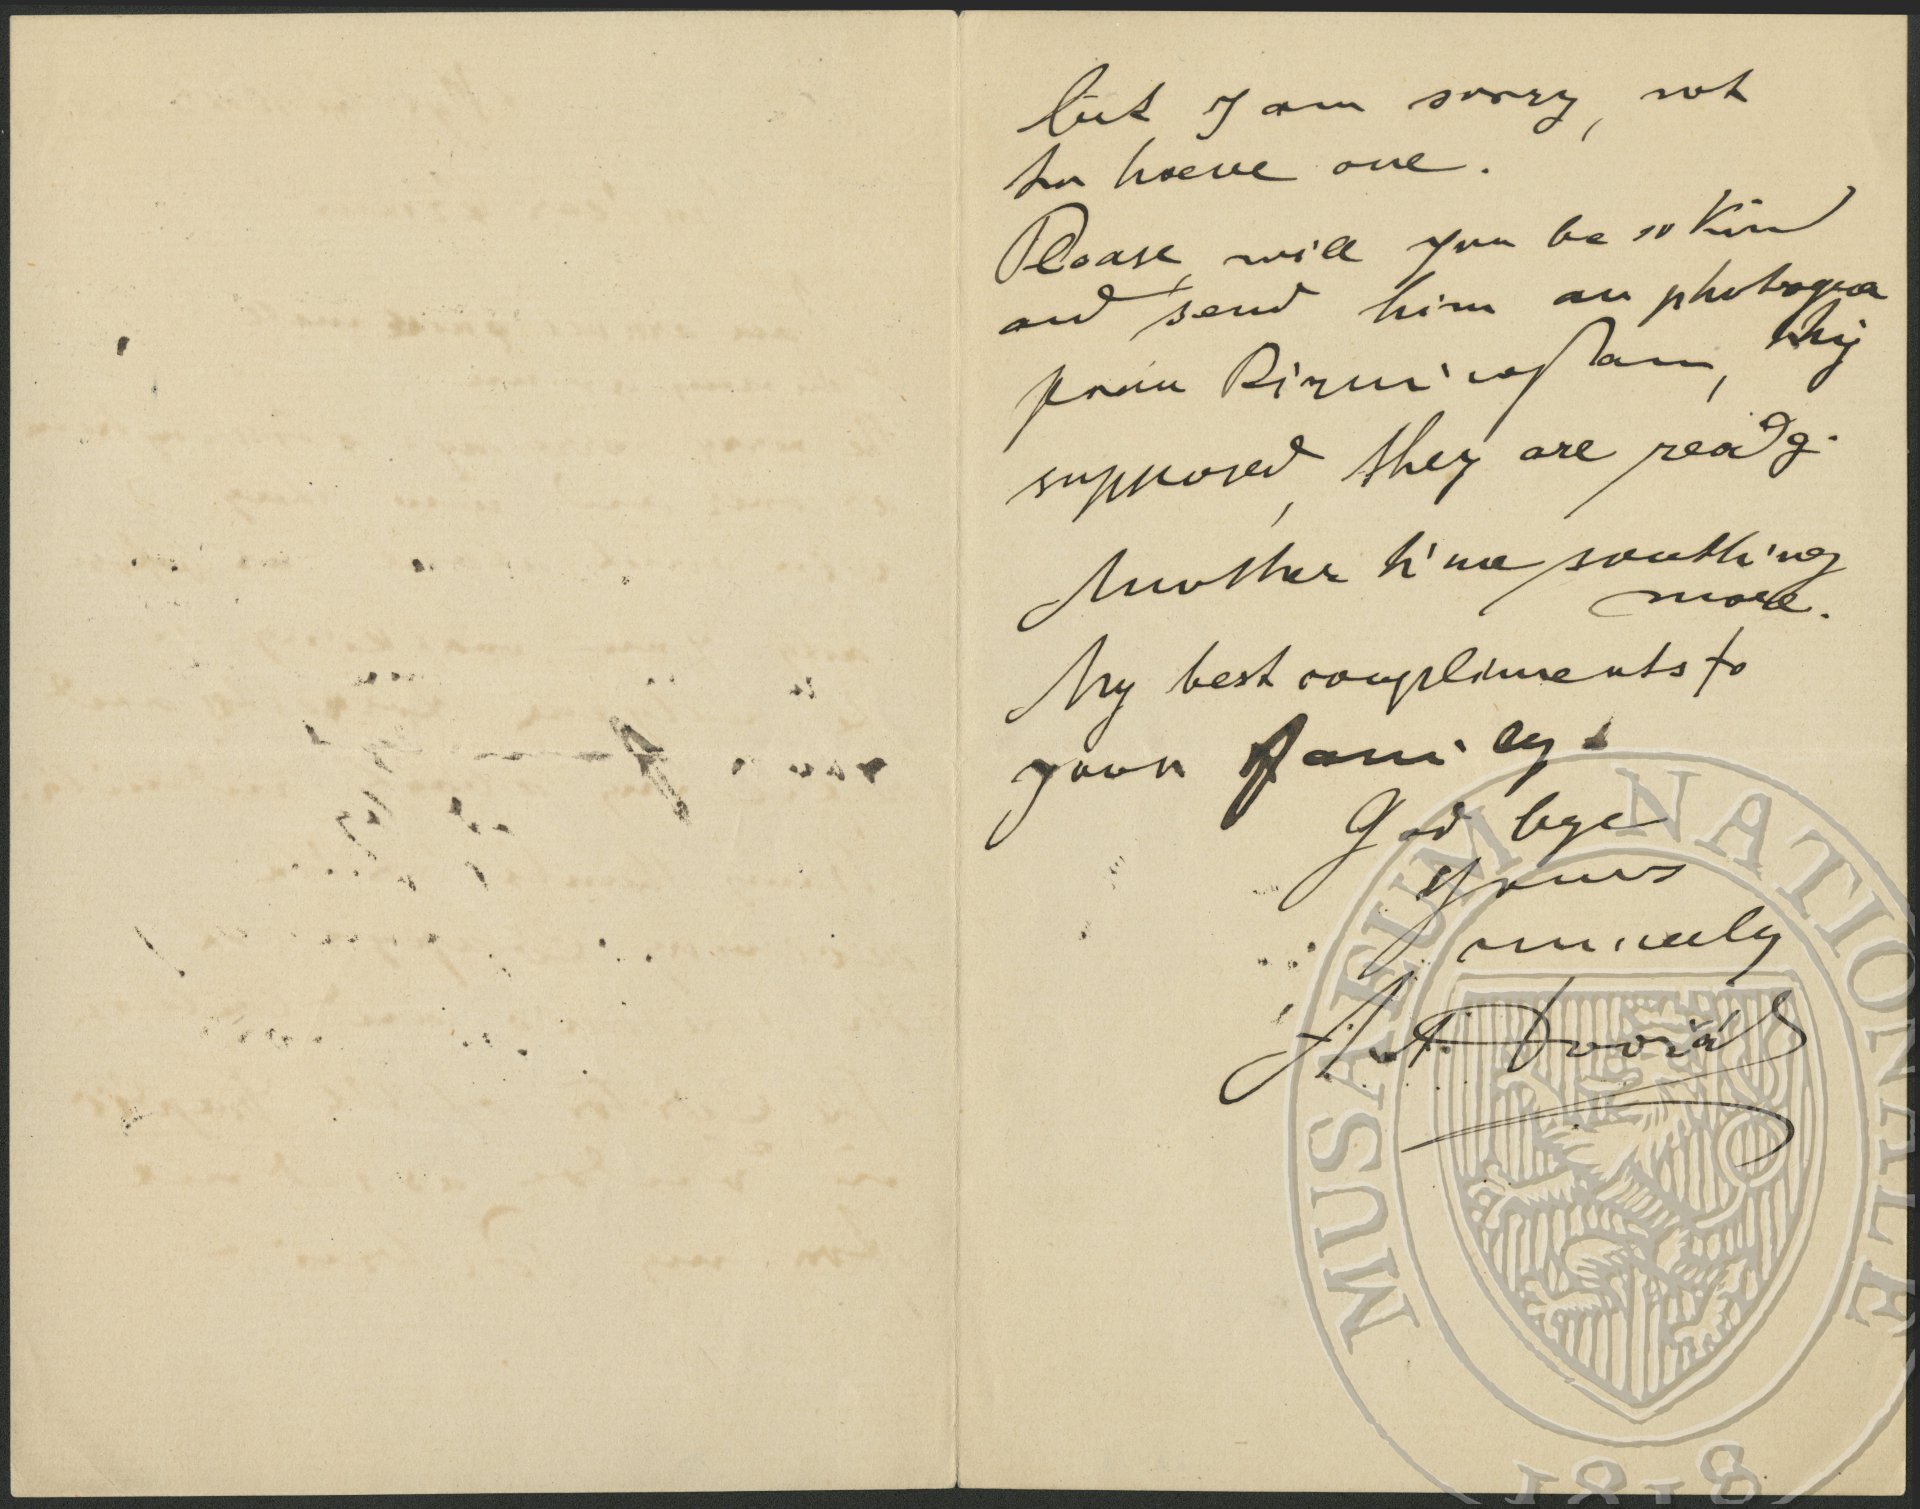 but I am sorry, not
to haeve one.
Please, will you be so kind
and send him an photogra
phy
from Birmingham,
supposed, they are readg.
Another time somthing
more.
My best compliments to
your family.
God bye
Yours
Ant. Dvořák
MUSAEUM NATIONALE
1818